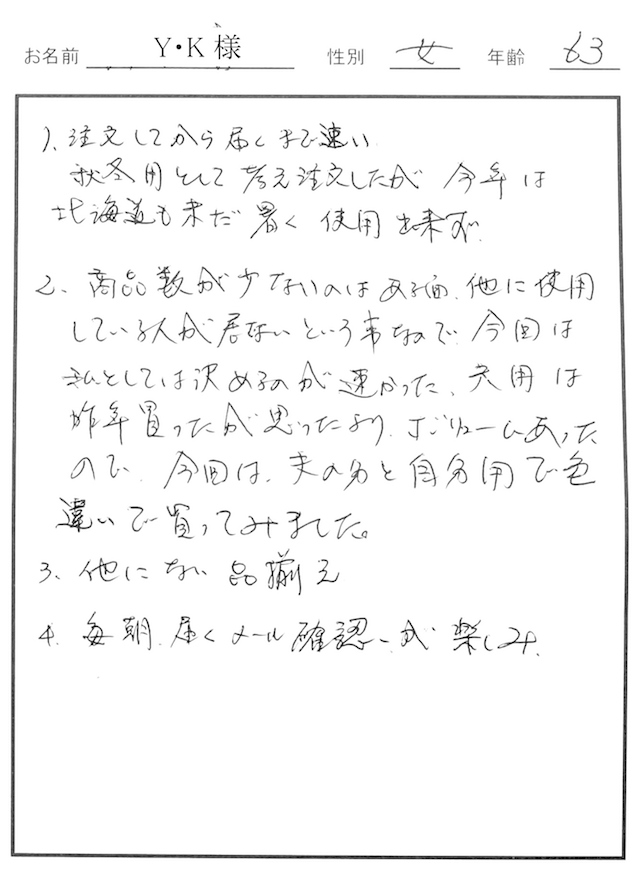 お名前 Y・K 様 性別 女 年齢 63
1、注文してから届くまで速い
秋冬用として考え注文したが 今年は
北海道も未だ暑く 使用出来ず。
2、商品数が少ないのはある面、他に使用
している人が居ないという事なので 今回は
私としては決めるのが速かった、夫用は
昨年買ったが思ったより、ボリュームあった
ので、今回は、夫の分と自分用で色
違いで買ってみました。
3、他にない品揃え
4、毎朝、届くメール確認、が楽しみ、